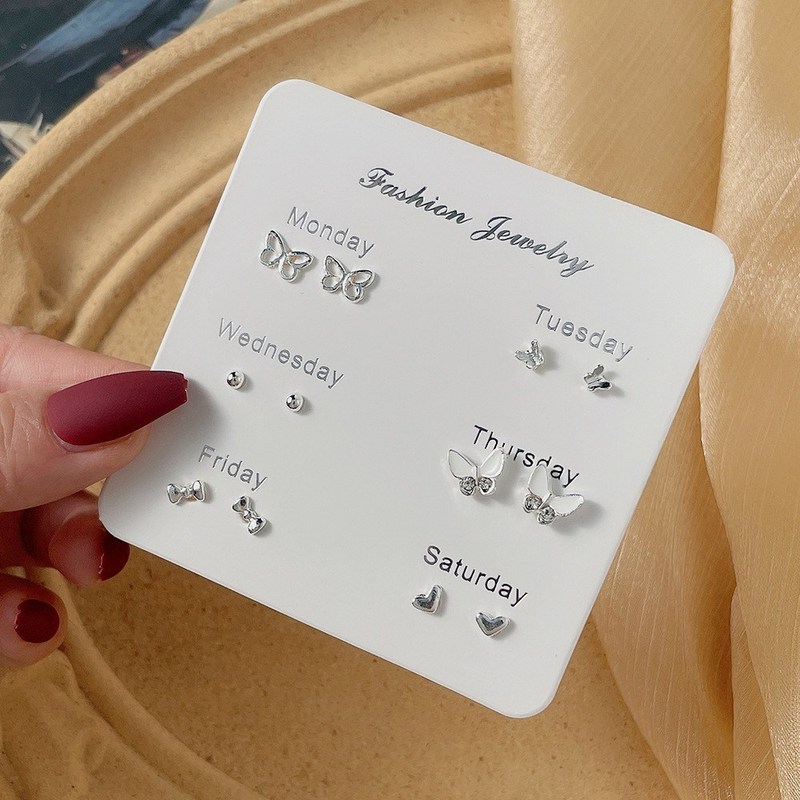 Fashion Jewelry
Monday
Tuesday
Wednesday
Thursday
Friday
Saturday